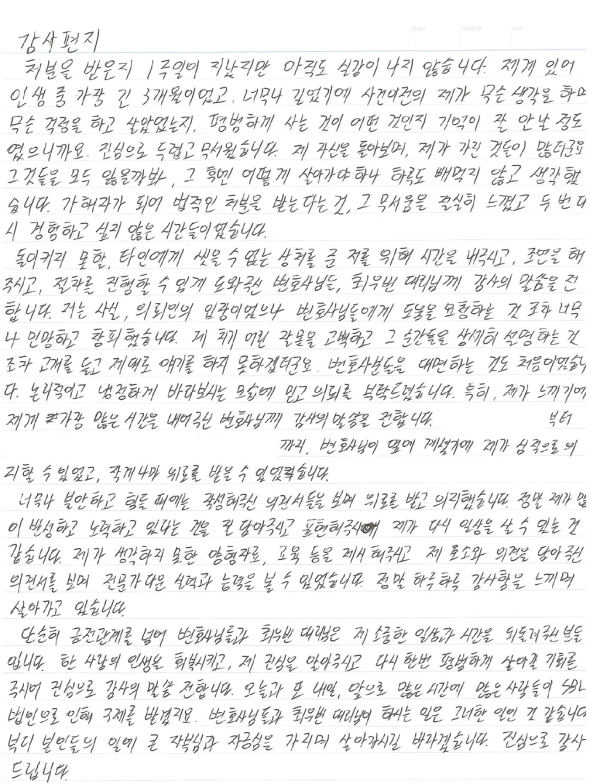 감사편지
처분을 받은지 1주일이 지났지만 아직도 실감이 나지 않습니다. 제게 있어
인생 중 가장 긴 3개월이었고, 너무나 길었기에 사건이전의 제가 무슨 생각을 하며
무슨 걱정을 하고 살았었는지, 평범하게 사는 것이 어떤 것인지 기억이 잘 안날 정도
였으니까요. 진심으로 두렵고 무서웠습니다. 제 자신을 돌아보며, 제가 가진 것들이 많더군요
그것들을 모두 잃을까봐, 그 후엔 어떻게 살아가야하나 하루도 빼먹지 않고 생각했
습니다. 가해자가 되어 법적인 처분을 받는다는 것, 그 무서움을 절실히 느꼈고 두 번 다
시 경험하고 싶지 않은 시간들이었습니다.
돌이키지 못할, 타인에게 씻을 수 없는 상처를 준 저를 위해 시간을 내주시고, 조언을 해
주시고, 절차를 진행할 수 있게 도와주신 변호사님들, 최우빈 대리님께 감사의 말씀을 전
합니다. 저는 사실, 의뢰인의 입장이었으나 변호사님들에게 도움을 요청하는 것 조차 너무
나 민망하고 창피했습니다. 제 치기 어린 잘못을 고백하고 그 순간들을 상세히 설명하는 건
조차 고개를 들고 제대로 얘기를 하지 못하겠더군요. 변호사분들을 대면하는 것도 처음이었습니
다. 논리적이고 냉정하게 바라보시는 모습에 믿고 의뢰를 부탁드렸습니다. 특히, 제가 느끼기에
제게 가장 많은 시간을 내어주신 변호사님께 감사의 말씀을 전합니다. 부터
까지, 변호사님이 떨어 계셨기에 제가 심적으로 의
지할 수 있었고, 적게나마 위로를 받을 수 있었습니다.
너무나 불안하고 힘들 때에는 작성해주신 의견서들을 보며 위로를 받고 의지했습니다. 정말 제가 많
이 반성하고 노력하고 있다는 것을 잘 담아주시고 표현해주시어 제가 다시 일상을 살 수 있는 것
같습니다. 제가 생각하지 못한 양형자료, 교육 등을 제시해주시고 제 호소와 의견을 담아주신
의견서를 보며 전문가다운 실력과 능력을 볼 수 있었습니다. 정말 하루하루 감사함을 느끼며
살아가고 있습니다.
단순히 금전관계를 넘어 변호사님들과 최우빈 대리님은 제 소중한 일상과 시간을 되돌려주신 분들
입니다. 한 사람의 인생을 회복시키고, 제 진심을 알아주시고 다시 한번 평범하게 살아갈 기회를
주시어 진심으로 감사의 말씀 전합니다. 오늘과 또 내일, 앞으로 많은 시간에 많은 사람들이 SBL
법인으로 인해 구제를 받겠지요. 변호사님들과 최우빈 대리님이 하시는 일은 그러한 일인 것 같습니다
부디 본인들의 일에 큰 자부심과 자긍심을 가지며 살아가시길 바라겠습니다. 진심으로 감사
드립니다.